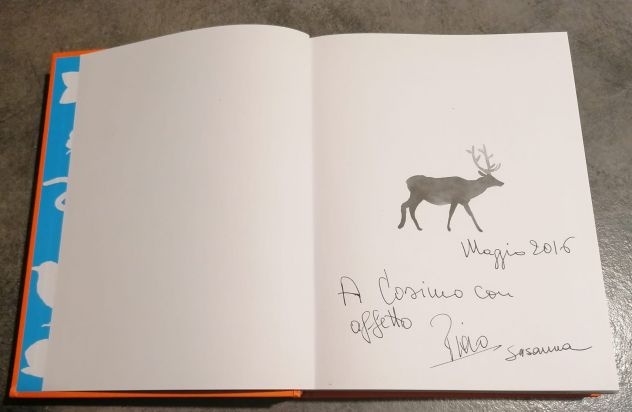 Maggio 2016
A Cosimo con
affetto
Piero Susanna